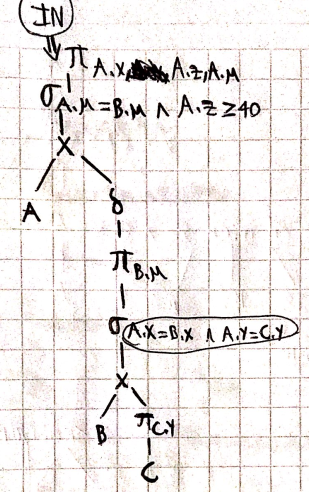 IN
π A.X A.Z, A.M
σ A.M = B.M ∧ A.Z ≥ 40
X
A
δ
π B.M
σ A.X = B.X ∧ A.Y = C.Y
X
B π C.Y
C